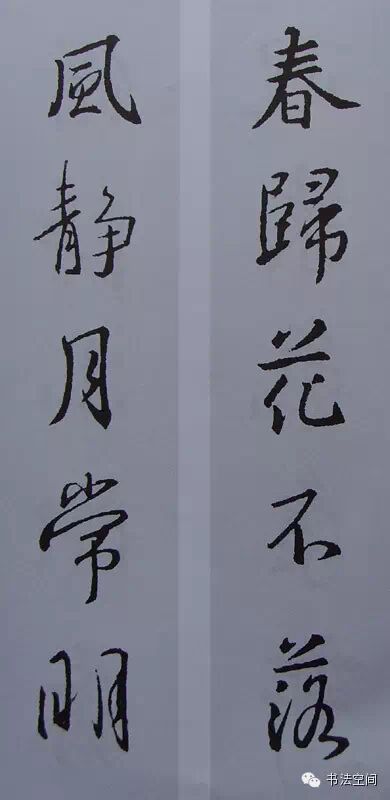 春歸花不落
風静月常明
书法空间